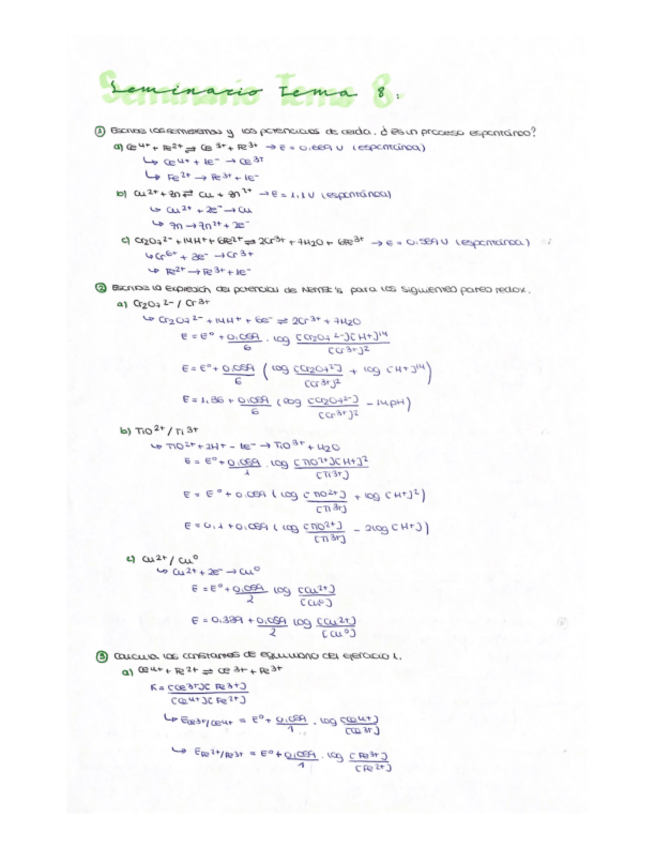 Seminario Tema 8.
① Escribe las semirreacciones y los potenciales de celda. ¿ es un proceso espontáneo?
a) Ce4+ + Fe2+ ⇌ Ce3+ + Fe3+ → E = 0.669 V (espontánea)
↳ Ce4+ + 1e- → Ce3+
↳ Fe2+ → Fe3+ + 1e-
b) Cu2+ + Zn ⇌ Cu + Zn2+ → E = 1,1 V (espontánea)
↳ Cu2+ + 2e- → Cu
↳ Zn → Zn2+ + 2e-
c) Cr2O7 2- + 14H+ + 6Fe2+ ⇌ 2Cr3+ + 7H2O + 6Fe3+ → E = 0.559 V (espontánea)
↳ Cr6+ + 3e- → Cr3+
↳ Fe2+ → Fe3+ + 1e-
② Escribe la expresión del potencial de Nernst's para los siguientes pares redox.
a) Cr2O7 2- / Cr3+
↳ Cr2O7 2- + 14H+ + 6e- ⇌ 2Cr3+ + 7H2O
E = Eº + 0.059/6 · log [Cr2O7 2-][H+]14/[Cr3+]2
E = Eº + 0.059/6 (log [Cr2O7 2-]/[Cr3+]2 + log [H+]14)
E = 1,36 + 0.059/6 (log [Cr2O7 2-]/[Cr3+]2 - 14pH)
b) TiO2+ / Ti3+
↳ TiO2+ + 2H+ - 1e- → TiO3+ + H2O
E = Eº + 0.059/1 · log [TiO2+][H+]2/[Ti3+]
E = Eº + 0.059 (log [TiO2+]/[Ti3+] + log [H+]2)
E = 0,1 + 0,059 (log [TiO2+]/[Ti3+] - 2log [H+])
c) Cu2+ / Cuº
↳ Cu2+ + 2e- → Cuº
E = Eº + 0.059/2 log [Cu2+]/[Cuº]
E = 0.339 + 0.059/2 log [Cu2+]/[Cuº]
③ Calcula las constantes de equilibrio del ejercicio 1.
a) Ce4+ + Fe2+ ⇌ Ce3+ + Fe3+
K = [Ce3+][Fe3+]/[Ce4+][Fe2+]
↳ ECe3+/Ce4+ = Eº + 0.059/1 · log [Ce4+]/[Ce3+]
↳ EFe2+/Fe3+ = Eº + 0.059/1 · log [Fe3+]/[Fe2+]